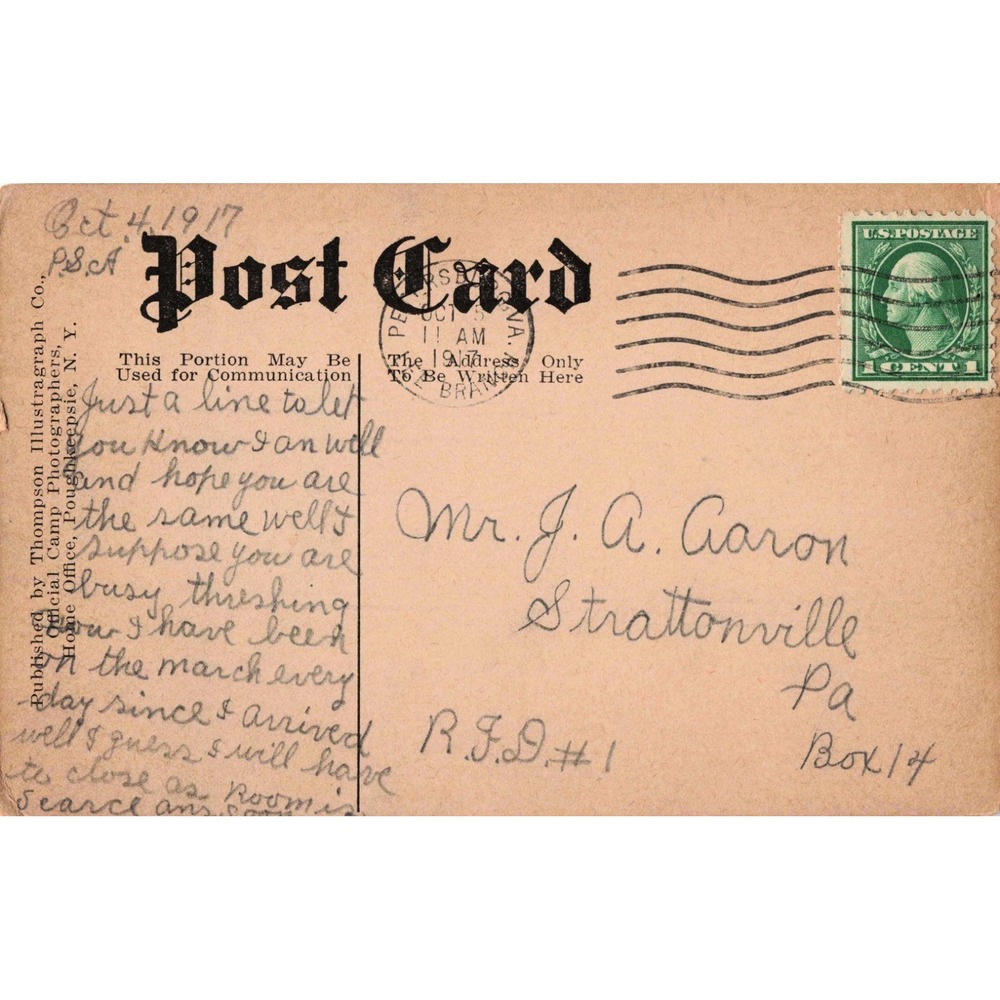 Oct 4, 1917
P.S.A
Post Card
PETERSBURG, VA.
OCT 5
11 AM
1917
BRANCH
U.S. POSTAGE
1 CENT 1
This Portion May Be
Used for Communication
The Address Only
To Be Written Here
Published by Thompson Illustragraph Co.,
Official Camp Photographers.
Home Office, Poughkeepsie, N. Y.
Just a line to let
you know I an well
and hope you are
the same well I
suppose you are
busy threshing
now I have been
on the march every
day since I arrived
well I guess I will have
to close as Room is
Scarce ans. soon
Mr. J. A. Aaron
Strattonville
Pa
R.F.D. #1
Box 14